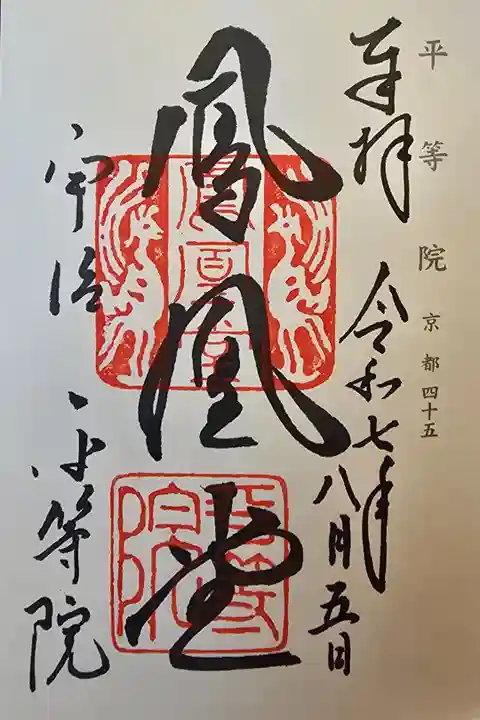 平等院 京都四十五
奉拝 令和七年八月五日
鳳凰堂
鳳凰堂
平等院
宇治 平等院